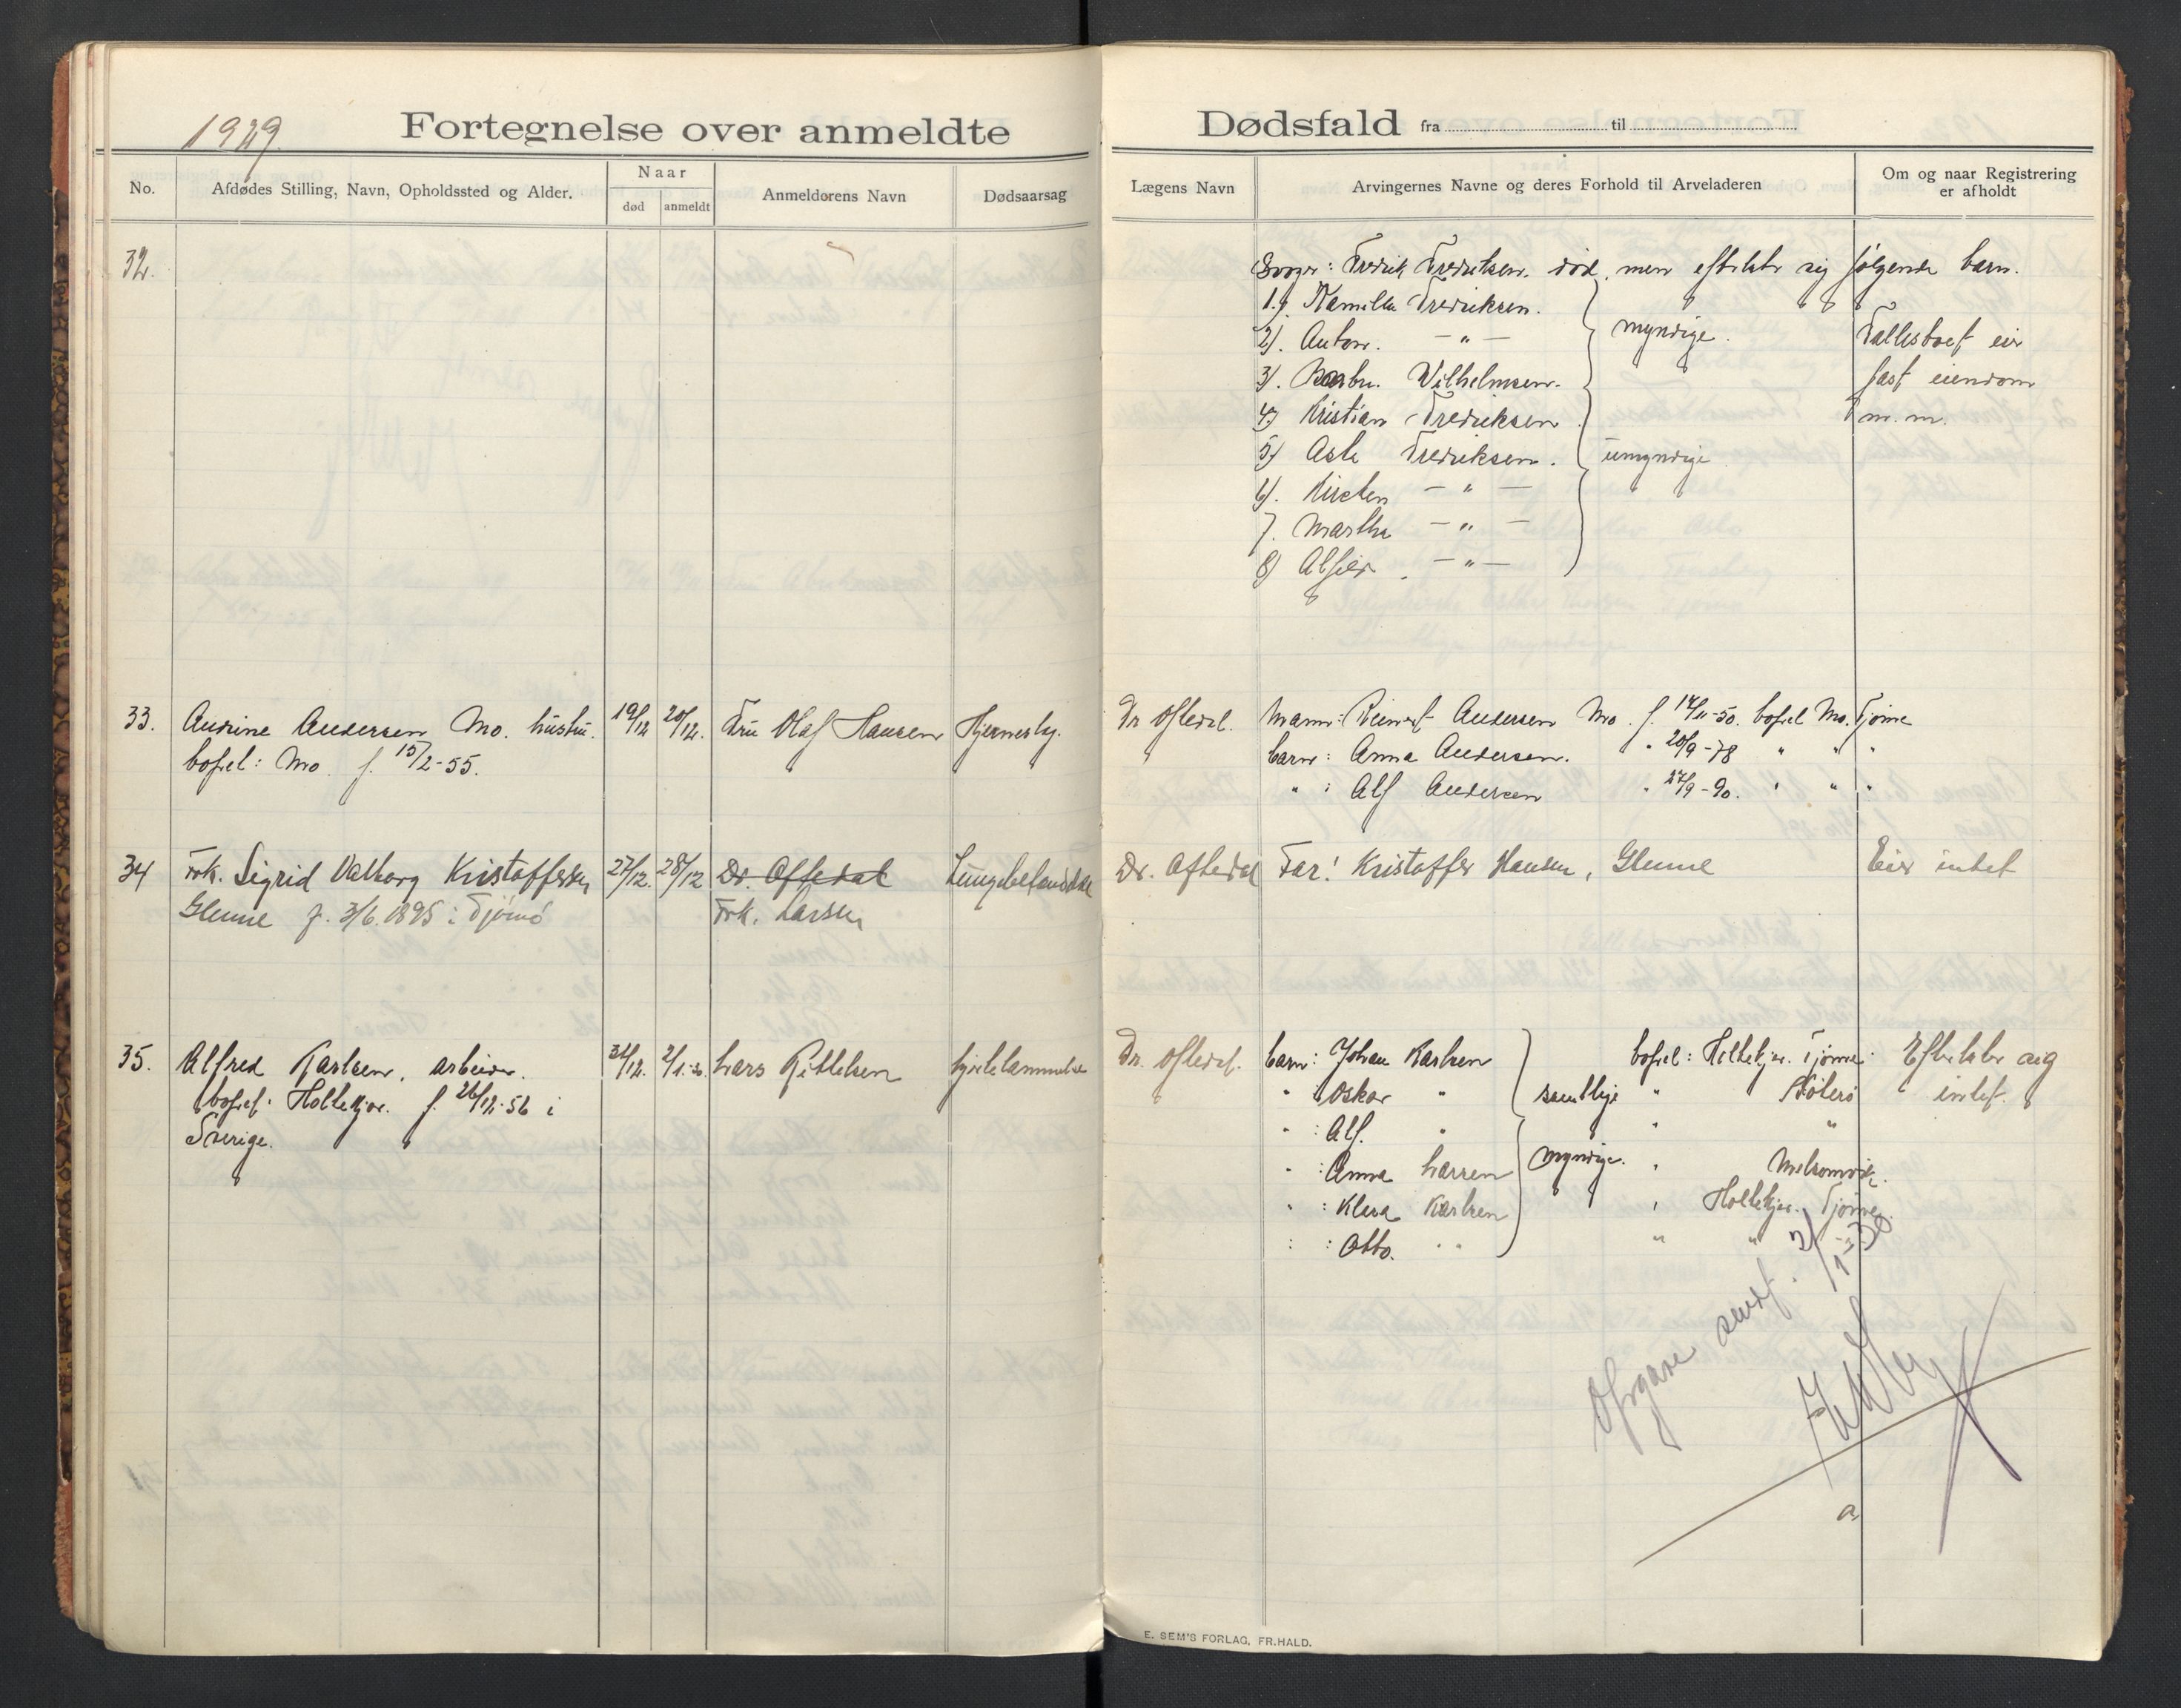 1929
Fortegnelse over anmeldte Dødsfald fra til
No.
Afdødes Stilling, Navn, Opholdssted og Alder.
Naar
død
anmeldt
Anmelderens Navn
Dødsaarsag
Lægens Navn
Arvingernes Navne og deres Forhold til Arveladeren
Om og naar Registrering
er afholdt
32.
Svoger: Fredrik Fredriksen. død, men efterlater sig følgende barn.
1.) Kamilla Fredriksen.
2). Anton. — " —
myndige.
Fællesboet eier
3). Wilhelmsen.
fast eiendom
4) Kristian Fredriksen
m. m.
5) Asle Fredriksen.
umyndige.
6). Kirsten — " —
7. Martha — " —
8) Alfild. — " —
33.
Andrine Andersen Mo. hustru.
19/12
20/12.
Fru Olaf Hansen
Hjerneslag.
Dr Oftedal.
Mann: Andersen Mo. f. 14/11-50. bofel Mo. Tjøme
bosel: Mo f. 15/2-55.
barn: Anna Andersen. " 20/9-78 " " "
" : Alf Andersen " 27/9-90. " " "
34
Frk. Sigrid Valborg Kristoffersen
27/12.
28/12
Dr. Oftedal
Lungebetændelse
Dr. Oftedal
Far: Kristoffer Hansen, Glenne
Eier intet
Glenne f. 3/6.1895 i Tjømø
Frk. Larsen
35.
Alfred Karlsen, arbeider.
31/12.
2/1.30
Lars Pettelsen
hjertelammelse
Dr. Oftedal.
barn: Johan Karlsen
bosel: Holtekjær. Tjøme.
Efterlater sig
bosel: Holtekjær. f. 26/12-56 i
" Oskar "
samtlige
" Nøterø
intet.
Sverige.
" : Alf. "
" "
" : Anna Larsen
myndige.
" Melsomvik.
" : Klara Karlsen
" Holtekjær. Tjøme.
: : Otto. " "
" "
Opgave sendt. 2/1-30
a
E. SEM'S FORLAG, FR.HALD.